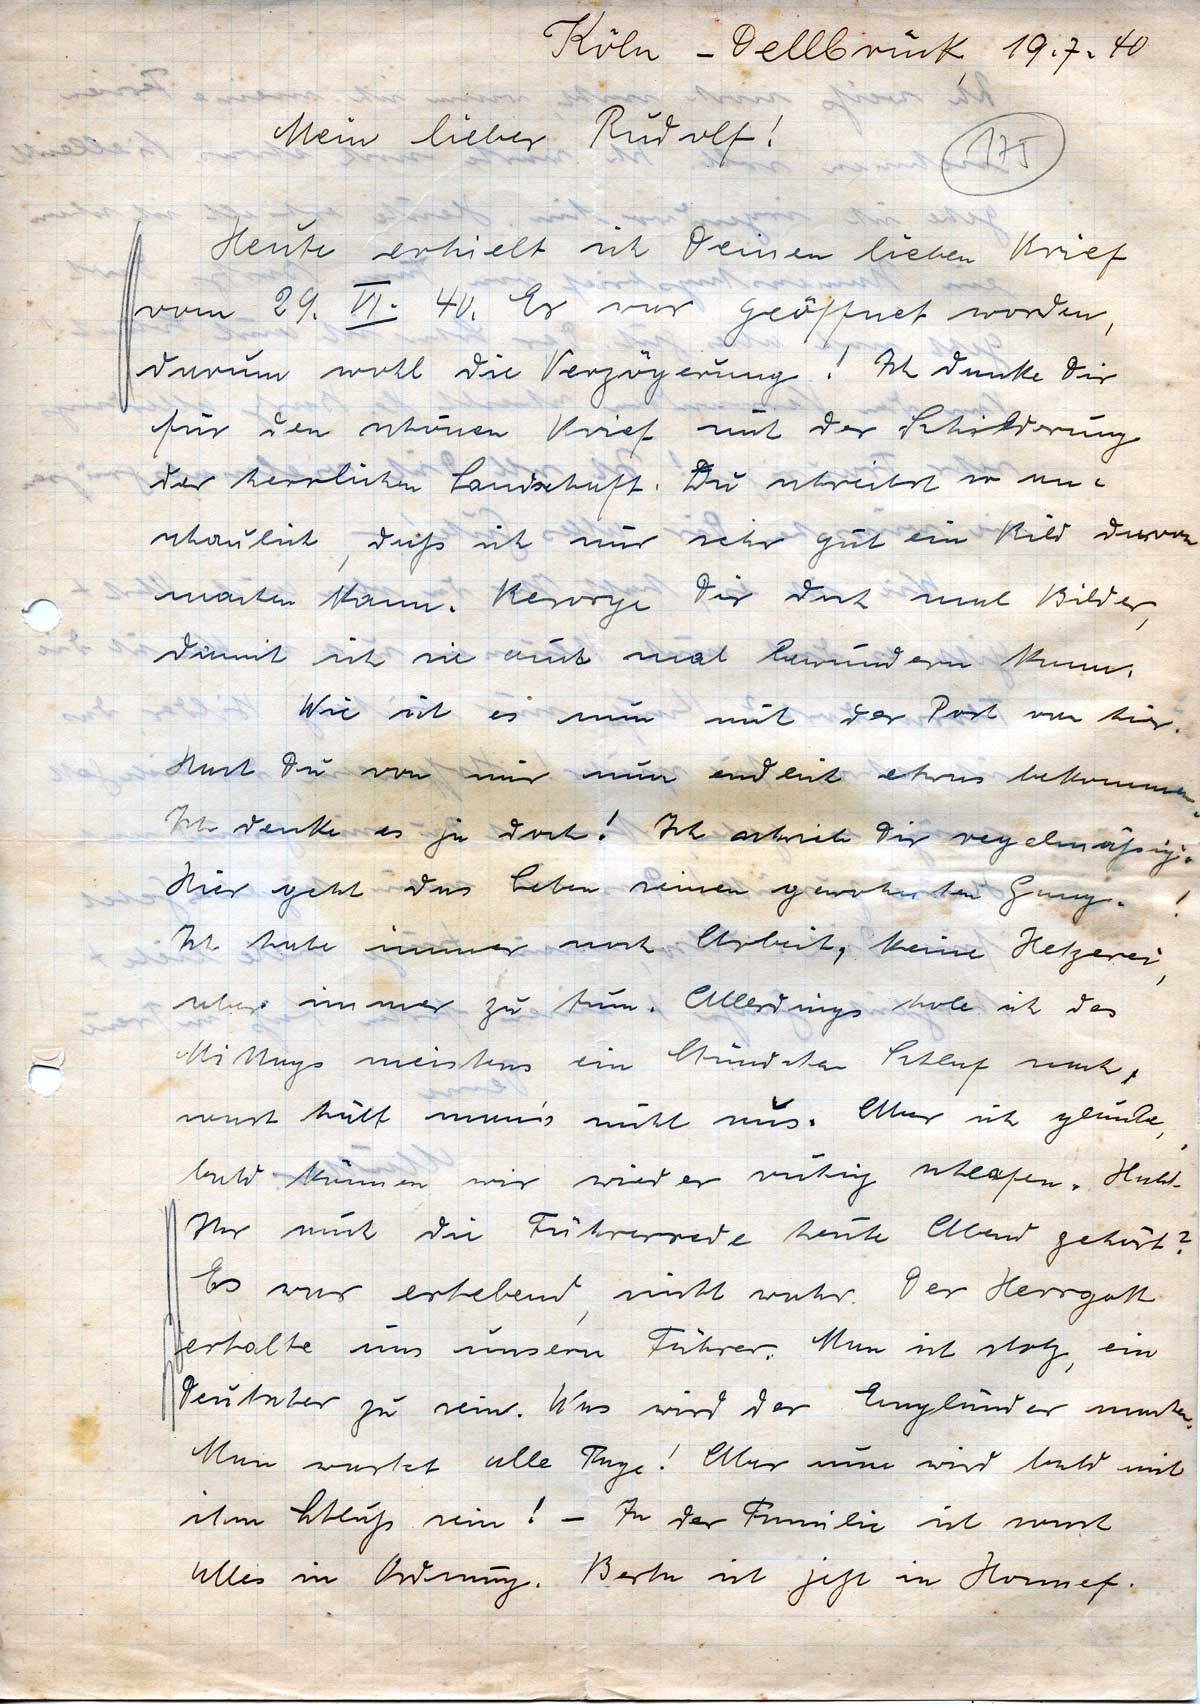 Köln – Dellbrück, 19.7.40
Mein lieber Rudolf!
175
Heute erhielt ich Deinen lieben Brief
vom 29. VI. 40. Er war geöffnet worden,
darum wohl die Verzögerung! Ich danke Dir
für den schönen Brief mit der Schilderung
der herrlichen Landschaft. Du schreibst so an-
schaulich, daß ich mir sehr gut ein Bild davon
machen kann. Besorge Dir doch mal Bilder,
damit ich sie auch mal bewundern kann.
Wie ist es nun mit der Post von hier.
Hast Du von mir nun endlich etwas bekommen.
Ich denke es ja doch! Ich schrieb Dir regelmäßig.
Hier geht das Leben seinen gewohnten Gang. !
Ich habe immer noch Arbeit, keine Hetzerei,
aber immer zu tun. Allerdings hole ich des
Mittags meistens ein Stündchen Schlaf nach,
sonst hält man's nicht aus. Aber ich glaube,
bald können wir wieder ruhig schlafen. Habt
Ihr auch die Führerrede heute Abend gehört?
Es war erhebend, nicht wahr. Der Herrgott
erhalte uns unsern Führer. Man ist stolz, ein
Deutscher zu sein. Was wird der Engländer machen.
Man wartet alle Tage! Aber nun wird bald mit
ihm Schluß sein! – In der Familie ist sonst
alles in Ordnung. Berta ist jetzt in Honnef.